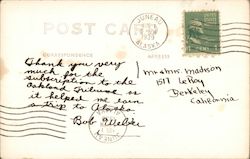 POST CARD
CORRESPONDENCE
ADDRESS
JUNEAU
1939
ALASKA
Thank you very
much for the
subscription to the
Oakland Tribune as
it helped me earn
a trip to Alaska
Bob Weber
Mr & Mrs. Madson
1511 LeRoy
Berkeley
California